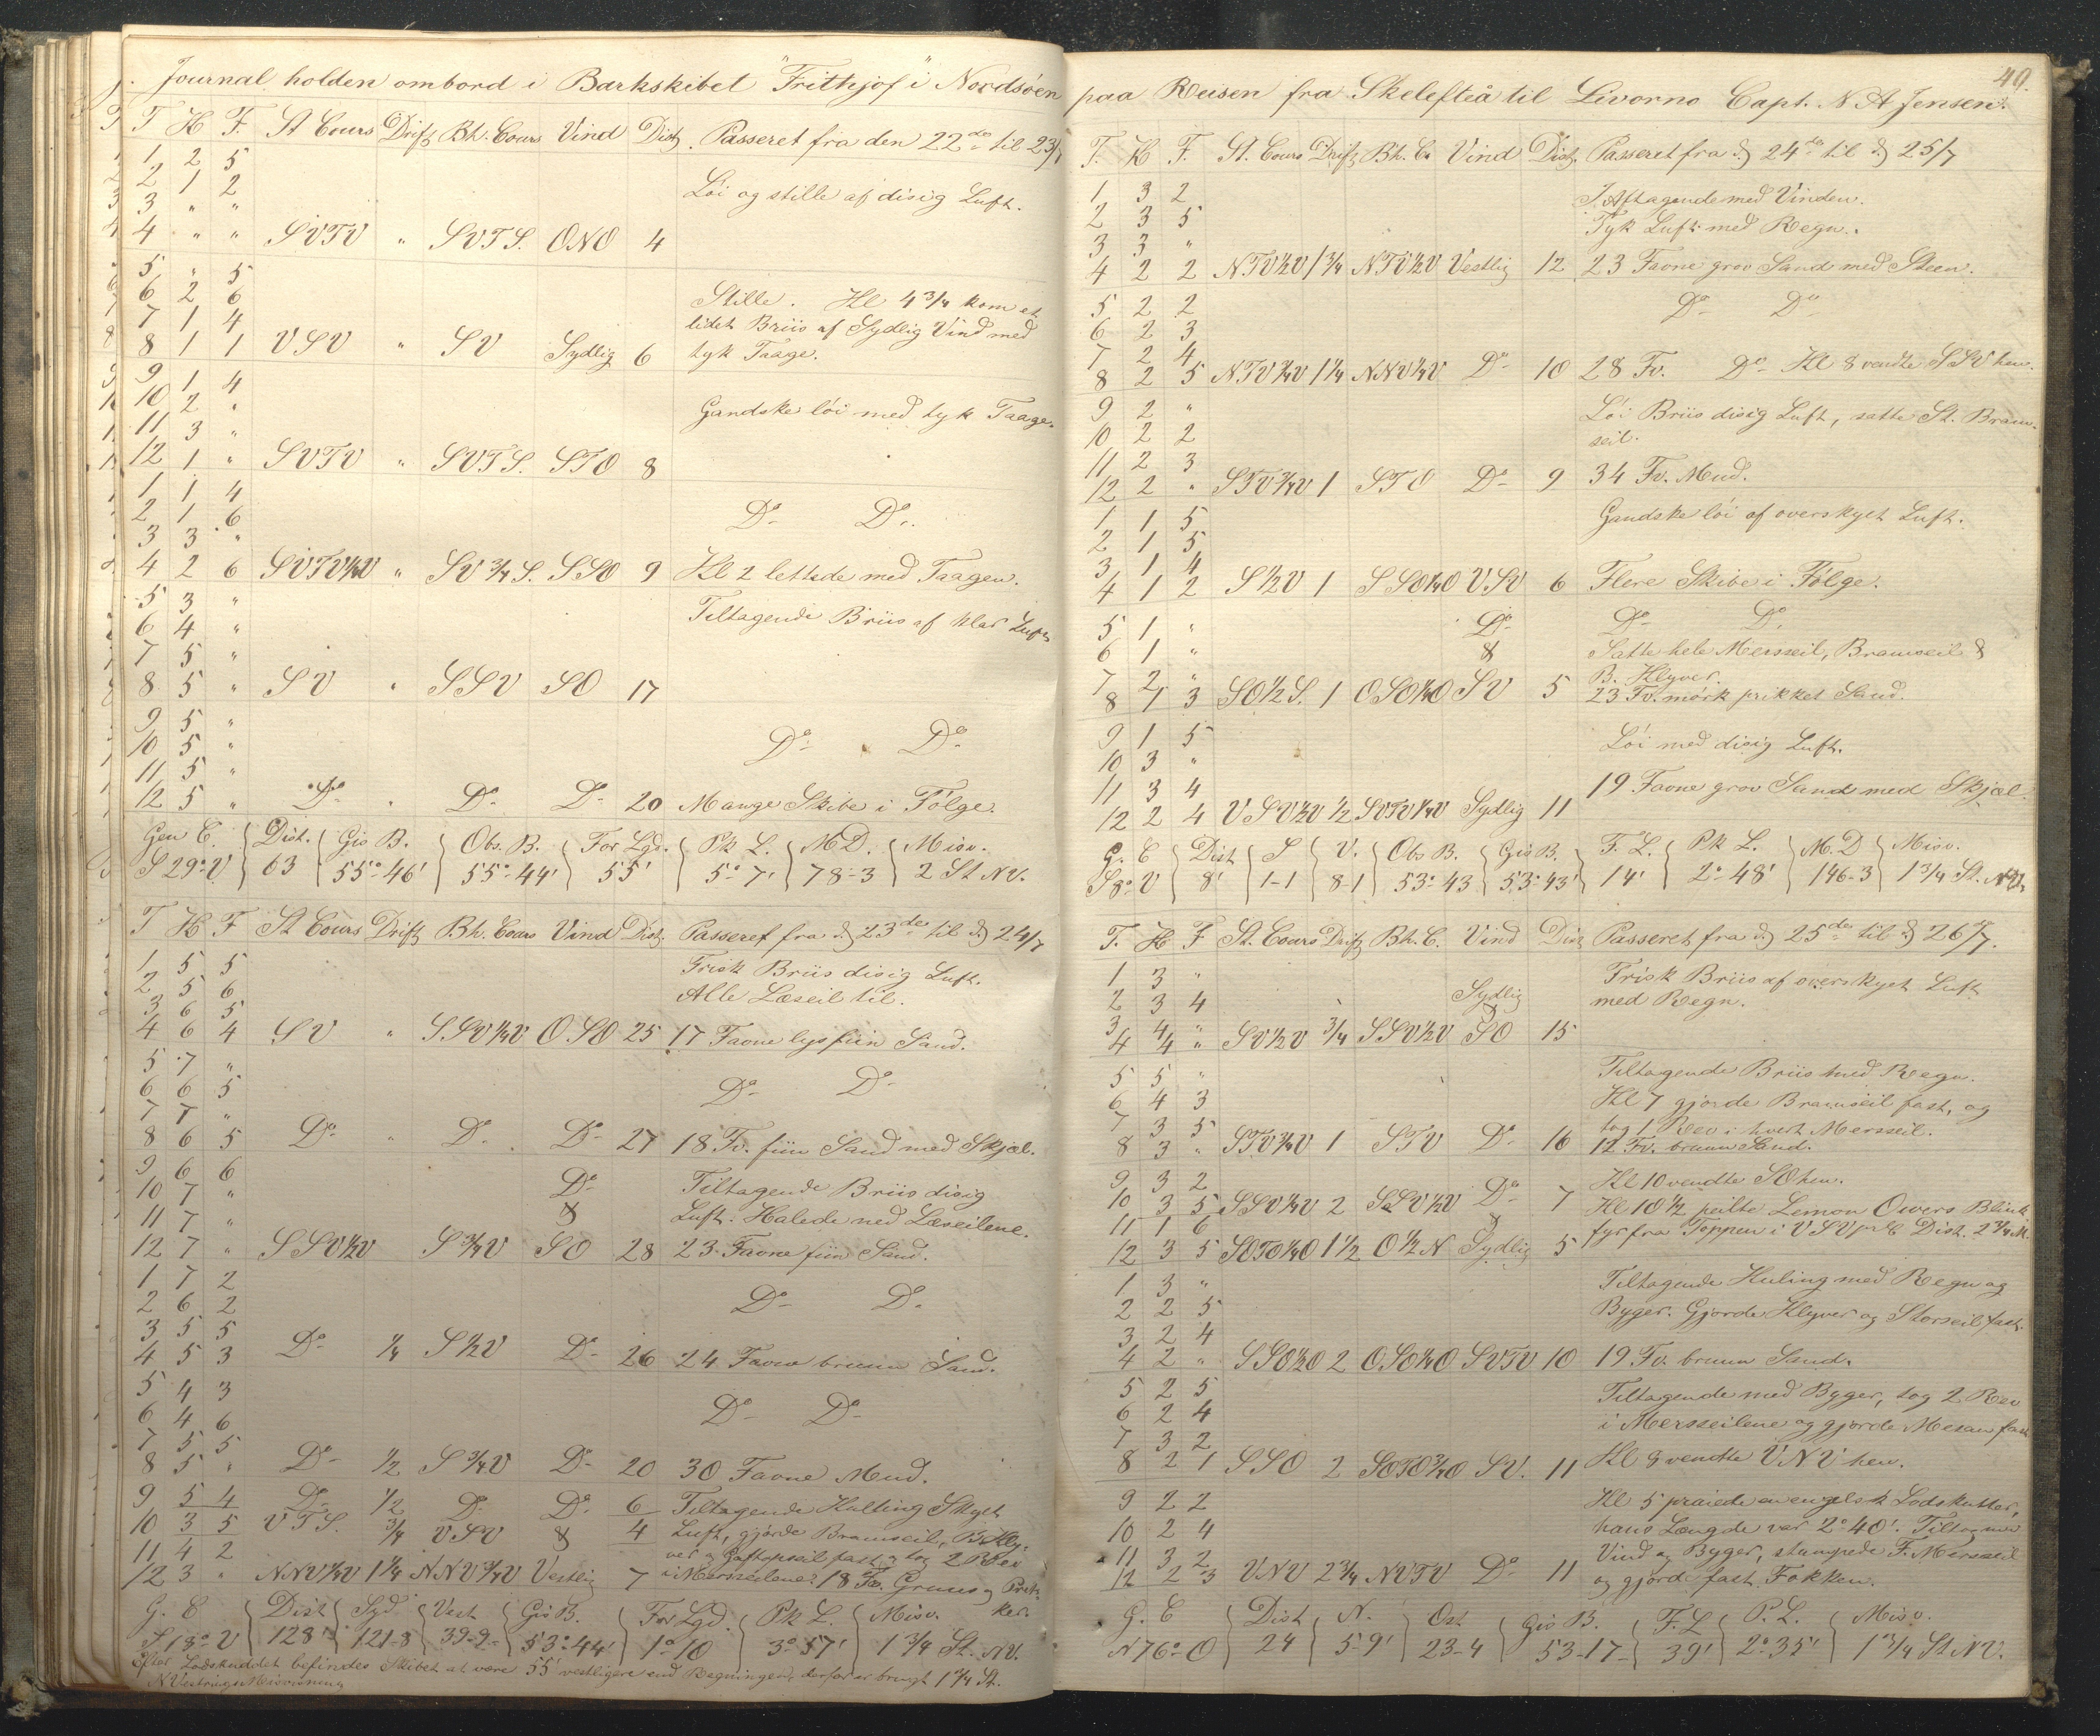 Journal holden ombord i Barkskibet "Frithjof" i Nordsöen
T H F. St Cours Drift Bh. Cours Vind Dist. Passeret fra den 22de til 23/7
1 2 5
2 1 2 Löi og stille af disig Luft.
3 " "
4 " " SVTV " SVTS. ONO 4
5 " 5
6 2 6 Stille. Kl 4 3/4 kom et
7 1 4 lidet Briis af Sydlig Vind med
8 1 1 VSV " SV Sydlig 6 tyk Taage.
9 1 4
10 2 " Gandske löi med tyk Taage.
11 3 "
12 1 " SVTV " SVTS. STO 8
1 1 4
2 1 6 Do Do.
3 3 "
4 2 6 SVTV1/2V " SV 3/4 S. SSO 9 Kl 2 lettede med Taagen.
5 3 "
6 4 " Tiltagende Briis af klar Luft
7 5 "
8 5 " SV " SSV SO 17
9 5 "
10 5 " Do Do
11 5 "
12 5 " Do " Do Do 20 Mange Skibe i Fölge.
Gen C. Dist. Gis B. Obs. B. For Lgd. Pk L. M D. Misv.
S 29° V 63 55° 46' 55° 44' 55' 5° 7' 78-3 2 St NV.
T H F St Cours Drift Bh. Cours Vind Dist. Passeret fra d 23de til d 24/7
1 5 5 Frisk Briis disig Luft.
2 5 6 Alle Læseil til.
3 6 5
4 6 4 SV " SSV1/4V OSO 25 17 Favne lys fiin Sand.
5 7 "
6 6 5 Do Do
7 7 "
8 6 5 Do " Do. Do 27 18 Fv. fiin Sand med Skjæl.
9 6 6 Do Tiltagende Briis disig
10 7 " & Luft. Halede ned Læseilene.
11 7 "
12 7 " SSV1/2V S 3/4 V SO 28 23 Favne fiin Sand.
1 7 2
2 6 2 Do Do.
3 5 5
4 5 3 Do 1/4 S 1/2 V Do 26 24 Favne bruun Sand.
5 4 3
6 4 6 Do Do
7 5 5
8 5 " Do 1/2 S 3/4 V Do 20 30 Favne Mud.
9 5 4 Do 1/2 Do Do. 6 Tiltagende Kulling Skyet
10 3 5 VTS. 3/4 VSV & 4 Luft, gjörde Bramseil, B. Kly-
11 4 2 ver og Gaftopseil fast, og tog 2 Rev
12 3 " NNV1/4V 1 1/4 NNV3/4V Vestlig 7 i Mersseilene. 18 Fv. Gruus og Prik-
ker.
G. C Dist Syd Vest Gis B. For Lgd. Pk L. Misv.
S. 18° V 128' 121-8 39-9 53° 44' 1° 10 3° 57' 1 3/4 St. NV.
Efter Lodskuddet befindes Skibet at være 55' vestligere end Regningen, derfor er brugt 1 3/4 St.
N Vestrings Misvisning
49.
paa Reisen fra Skelefteå til Livorno Capt. N A Jensen.
T. H F. St. Cours Drift Bh. C. Vind Dist. Passeret fra d 24de til d 25/7
1 3 2 I Aftagende med Vinden.
2 3 5 Tyk Luft med Regn.
3 3 "
4 2 2 NTV1/2V 1 3/4 NTV1/2V Vestlig 12 23 Favne grov Sand med Steen.
5 2 2 Do Do
6 2 3
7 2 4
8 2 5 NTV3/4V 1 1/4 NNV1/4V Do 10 28 Fv. Do Kl 8 vendte SSV hen.
9 2 " Löi Briis disig Luft, satte St. Bram-
10 2 2 seil.
11 2 3
12 2 " STV3/4V 1 STO Do 9 34 Fv. Mud.
1 1 5 Gandske löi af overskyet Luft.
2 1 5
3 1 4
4 1 2 S 1/2 V 1 SSO1/4O VSV 6 Flere Skibe i Fölge.
5 1 " Do Do Do
6 1 " & Satte hele Mersseil, Bramseil &
7 2 " B. Klyver.
8 1 3 SO 1/2 S. 1 OSO1/4O SV 5 23 Fv. mörk prikket Sand.
9 1 5 Löi med disig Luft.
10 3 "
11 3 4 19 Favne grov Sand med Skjæl.
12 2 4 VSV1/2V 1/2 SVTV1/4V Sydlig 11
G. C Dist S V. Obs B. Gis B. F. L. Pk L. M. D Misv.
S 8° V 8' 1-1 8-1 53° 43 53° 43' 14' 2° 48' 146-3 1 3/4 St. NV.
T. H F St. Cours Drift Bh. C. Vind Dist Passeret fra d 25de til d 26/7.
1 3 " Frisk Briis af overskyet Luft
2 3 4 Sydlig med Regn.
3 4 " &
4 4 " SV1/2V 3/4 SSV1/2V SO 15
5 5 " Tiltagende Briis med Regn.
6 4 3 Kl 7 gjorde Bramseil fast, og
7 3 5 tog 1 Rev i hvert Mersseil.
8 3 " STV3/4V 1 STV Do 16 12 Fv. bruun Sand.
9 3 2 Kl 10 vendte SO hen.
10 3 5 SSV1/4V 2 SSV1/2V Do 7 Kl 10 1/2 peilte Lemon Owers Blink
11 1 6 & fyr fra Toppen i VSV pr C Dist. 2 3/4 M.
12 3 5 SOTO1/4O 1 1/2 O 1/2 N Sydlig 5
1 3 " Tiltagende Kuling med Regn og
2 2 5 Byger. Gjorde Klyver og Storseil fast.
3 2 4
4 2 " SSO1/2O 2 OSO1/4O SVTV 10 19 Fv. bruun Sand.
5 2 5 Tiltagende med Byger, tog 2 Rev
6 2 4 i Mersseilene og gjorde Mesan fast
7 3 2
8 2 1 SSO 2 SOTO3/4O SV. 11 Kl 8 vendte VNV hen.
9 2 2 Kl 5 praiede en engelsk Lodskutter,
10 2 4 hans Længde var 2° 40'. Tiltagende
11 3 2 Vind og Byger, stumpede F. Mersseil
12 2 3 VNV 2 3/4 NVTV Do 11 og gjorde fast Fokken.
G. C Dist N. Ost Gis B. F. L P. L. Misv.
N 76° O 24 5-9' 23-4 53-17- 39' 2° 35' 1 3/4 St NV.